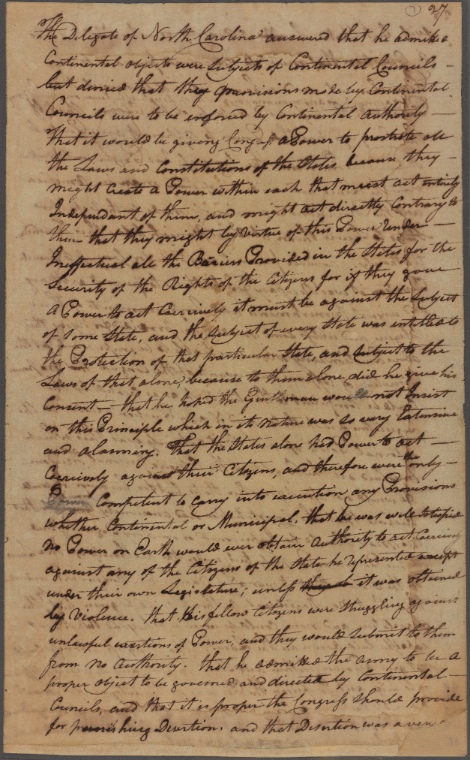 27
The Delegate of North Carolina answered that he admitted
Continental objects were subjects of Continental Councils –
but denied that they provisions made by Continental
Councils were to be enforced by Continental authority –
That it would be giving Congress a Power to prostrate all
the Laws and Constitutions of the States because they –
might create a Power within each that must act entirely
Independant of them, and might act directly contrary to
them that they might by virtue of this Power render –
Ineffectual all the Bariers Provided in the States for the
Security of the Rights of the Citizens for if they gave
a Power to act Coercively it must be against the Subject
of some State, and the subject of every State was entitled to
the Protection of that particular State, and subject to the
Laws of that alone, because to them alone did he give his
Consent – that he hoped the Gentleman would not Insist
on this Principle which in its nature was so very Extensive
and alarming. That the States alone had Power to act –
Coercively against their Citizens, and therefore were the only –
Power Competent to Carry into execution any Provisions
whether Continental or Municipal. that he was well
no Power on Earth would ever obtain authority to act Coercively
against any of the Citizens of the State he represented except
under their own Legislature; unless it was obtained
by Violence. that his fellow Citizens were struggling against
unlawful exertions of Power, and they would submit to them
from no Authority. that he admitted the army to be a
proper object to be governed and directed by Continental –
Councils, and that it is proper the Congress should provide
for punishing Desertion. and that Desertion was a